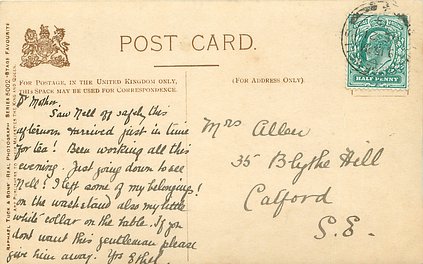 POST CARD.
FOR POSTAGE, IN THE UNITED KINGDOM ONLY,
THIS SPACE MAY BE USED FOR CORRESPONDENCE.
(FOR ADDRESS ONLY).
HALF PENNY
RAPHAEL TUCK & SONS' REAL PHOTOGRAPH SERIES 5002 "STAGE FAVOURITES
Dr Mother.
Saw Nell off safely this
afternoon arrived just in time
for tea! Been working all this
evening. Just going down to see
Nell! I left some of my belongings!
on the washstand also my little
white collar on the table. If you
dont want this gentleman please
give him away. Yrs Ethel
Mrs Allen
35 Blythe Hill
Catford
S.E.